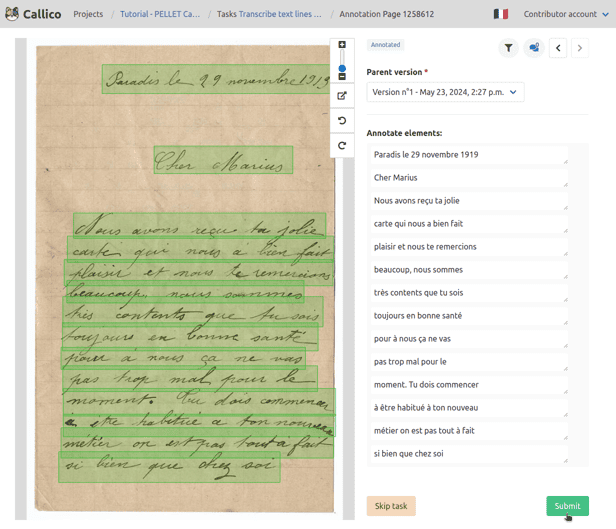 Callico
Projects / Tutorial - PELLET Ca... / Tasks Transcribe text lines ... / Annotation Page 1258612
Contributor account
Paradis le 29 novembre 1919
Cher Marius
Nous avons reçu ta jolie
carte qui nous a bien fait
plaisir et nous te remercions
beaucoup, nous sommes
très contents que tu sois
toujours en bonne santé
pour à nous ça ne vas
pas trop mal pour le
moment. Tu dois commencer
à etre habitué a ton nouveau
métier on est pas tout à fait
si bien que chez soi
Annotated
Parent version *
Version n°1 - May 23, 2024, 2:27 p.m.
Annotate elements:
Paradis le 29 novembre 1919
Cher Marius
Nous avons reçu ta jolie
carte qui nous a bien fait
plaisir et nous te remercions
beaucoup, nous sommes
très contents que tu sois
toujours en bonne santé
pour à nous ça ne vas
pas trop mal pour le
moment. Tu dois commencer
à être habitué à ton nouveau
métier on est pas tout à fait
si bien que chez soi
Skip task
Submit